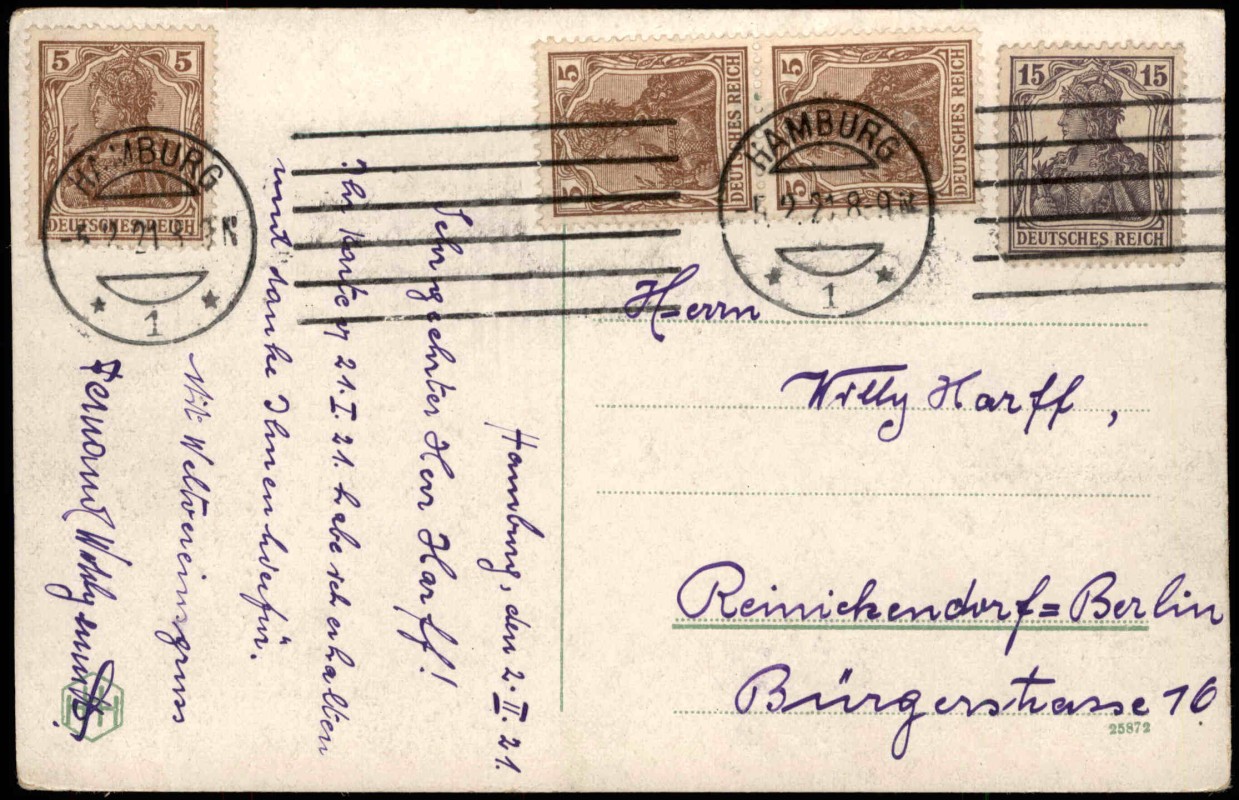 5 5
DEUTSCHES REICH
5 5
DEUTSCHES REICH
5 5
DEUTSCHES REICH
15 15
DEUTSCHES REICH
HAMBURG
2.21.8-9N
1
HAMBURG
2.21.8-9N
1
Hamburg, den 2.II.21.
Sehr geehrter Herr Harff!
Ihr Karte v. 21.I.21. habe ich erhalten
und danke Ihnen hierfür.
Mit Weltvereinsgruss
Herrn
Willy Harff,
Reinickendorf=Berlin
Bürgerstrasse 16
25872